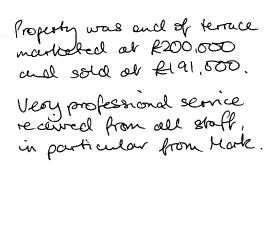 Property was end of terrace
marketed at £200,000
and sold at £191,500.
Very professional service
received from all staff,
in particular from Mark.